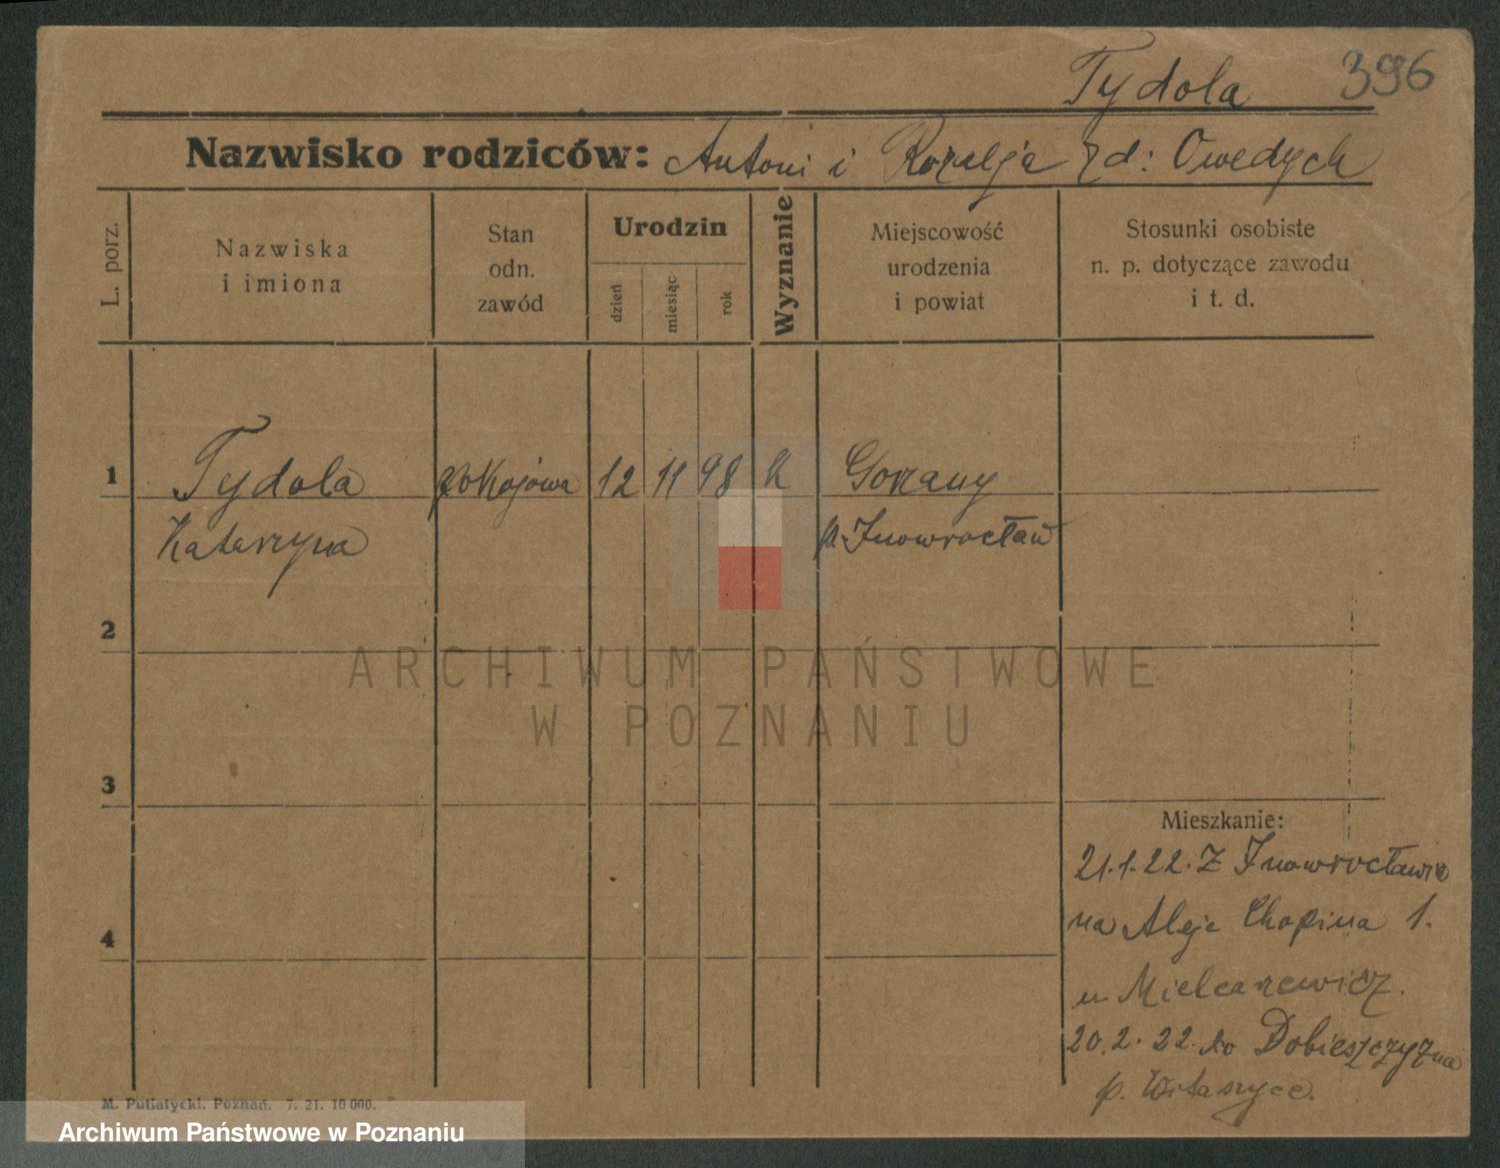 Tydola 396
Nazwisko rodziców: Antoni i Rozalja zd: Owedych
L. porz.
Nazwiska
i imiona
Stan
odn.
zawód
Urodzin
dzień
miesiąc
rok
Wyznanie
Miejscowość
urodzenia
i powiat
Stosunki osobiste
n. p. dotyczące zawodu
i t. d.
1 Tydola pokojowa 12 11 98 k Gorzany
Katarzyna p. Inowrocław
2
ARCHIWUM PAŃSTWOWE
W POZNANIU
3
Mieszkanie:
21.1.22. Z Inowrocławia
na Aleje Chopina 1.
4
u Mielcarewicz.
20.2.22. do Dobieszczyzna
p. Witaszyce.
M. Putiatycki. Poznań. 7. 21. 10 000.
Archiwum Państwowe w Poznaniu